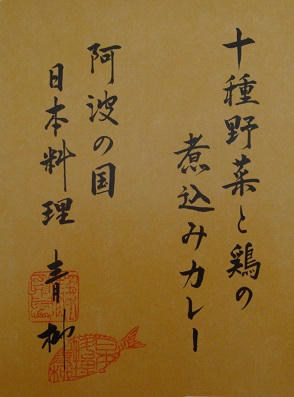 十種野菜と鶏の
煮込みカレー
阿波の国
日本料理 青柳